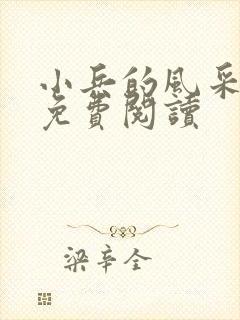 小兵的風采
免費閱讀
梁辛全